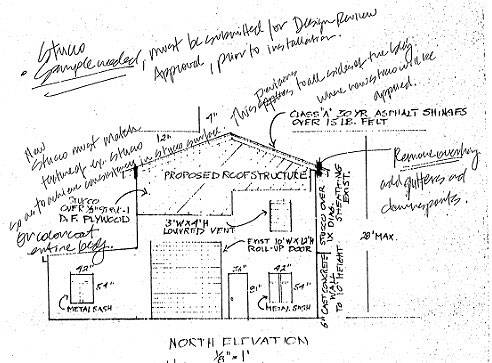 Stucco
• Sample needed, must be submitted for Design Review
Approval, prior to installation.
This applies to all sides of the bldg
where new stucco will be
applied.
7"
12"
CLASS "A" 30 YR ASPHALT SHINGLES
OVER 15 LB. FELT
New
stucco must match
texture of ex. stucco
so as to achieve consistency in stucco surface
Remove overhang
add gutters and
downspouts.
PROPOSED ROOF STRUCTURE
STUCCO
D.F. PLYWOOD
color coat
entire bldg.
3'W X 4'H
LOUVRED VENT
EXIST 10'W X 12'H
ROLL-UP DOOR
STUCCO OVER
1X DIAG.
SHEATHING
EXIST.
6" CAST CONCRETE
WALL
TO 10' HEIGHT
28' MAX.
42"
54"
METAL SASH
36"
81"
42"
54"
METAL SASH
NORTH ELEVATION
1/8" = 1'